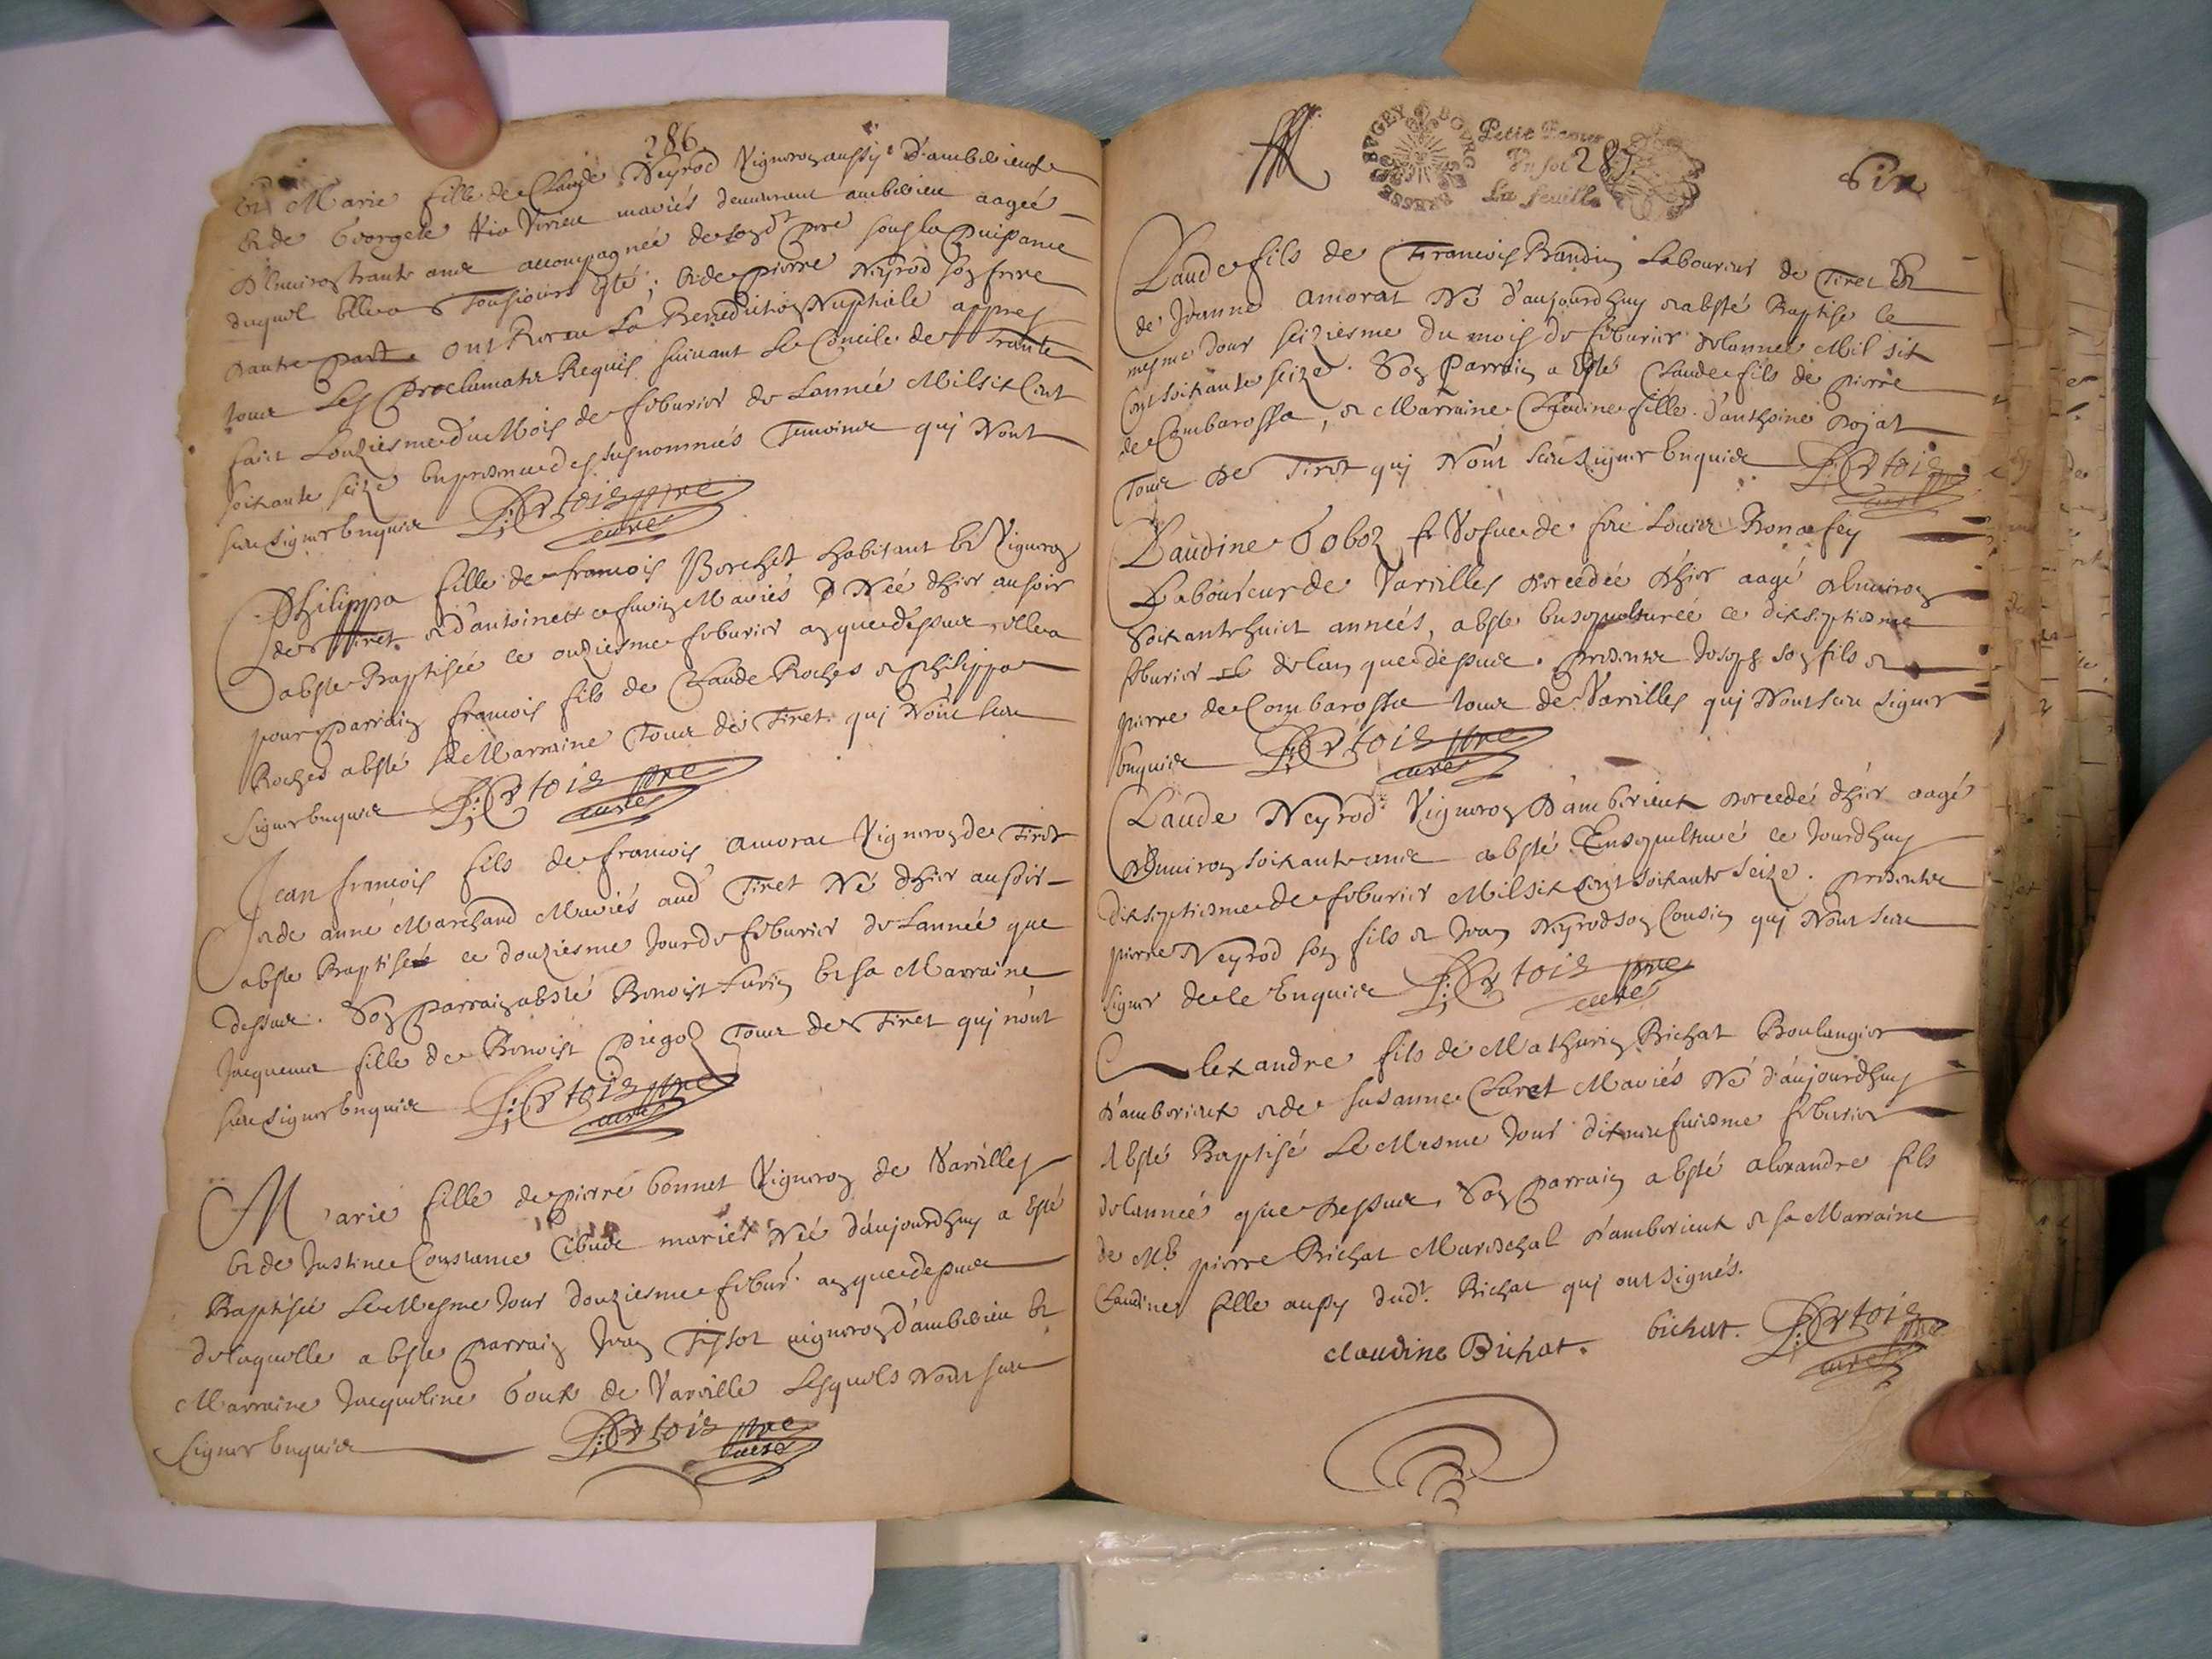 286
Et Marie fille de Claude Neyrod Vigneron aussy d'ambérieux
Et de Georgete Virieu mariés demeurant ambérieu aagée
d'Environ trante ans accompagnée de sond pere sous la puissance
duquel Elle a Tousiours esté; et de pierre Neyrod son frere
d'autre part ont Receu La Benediction Nuptiale appres
tous Les proclamats Requis suivant Le Concile de Trante
faict L'onziesme du Mois de feburier de Lannée Mil six Cent
soixante seize En presence des susnommés Temoins qui N'ont
sceu signer Enquis pbre
curé
Philippa fille de francois Borchet habitant Et Vigneron
de Tiret et d'antoinette Mariés Née d'hier au soir
a esté Baptisée ce onziesme feburier an que dessus, elle a
pour parrain francois fils de Claude Roches et philippa
Roches a esté sa Marraine Tous de Tiret qui N'ont sceu
signer Enquis pbre
curé
Jean francois fils de francois Amorat Vigneron de Tiret
et de anne Marchand Mariés aud Tiret Né d'hier au soir
a esté Baptisé ce douziesme Jour de feburier de Lannée que
dessus. Son parrain a esté Benoist Et sa Marraine
Jacquema fille de Benoist Tous de Tiret qui n'ont
sceu signer Enquis pbre
curé
Marie fille de pierre bonnet Vigneron de Vareilles
Et de Justine Constance mariés Née d'aujourdhuy a Esté
Baptisée Le Mesme Jour douziesme febur. an que dessus
de laquelle a Esté parrain Jean Tissot vigneron d'ambérieu Et
Marraine Jacqueline de Vareille Lesquels N'ont sceu
signer Enquis pbre
curé
BRESSE BVGEY BOVRG
Petit Papier
Vn sol 287
La feuille
Six
Claude fils de Francois Baudin Laboureur de Tiret Et
de Jeanne Amorat Né d'aujourdhuy et a esté Baptisé le
mesme Jour seiziesme du mois de feburier de lannée Mil six
Cent soixante seize. Son Parrain a Esté Claude fils de pierre
de Combarossa, et Marraine Claudine fille d'anthoine
Tous De Tiret qui N'ont sceu signer Enquis pbre
curé
Claudine Goboz Vefue de feu Louis
Laboureur de Vareilles decedée d'hier aagé d'Environ
soixante huict années, a esté Ensepulturée ce dixseptiesme
feburier de lan que dessus. presents Joseph son fils et
pierre de Combarossa tous de Vareilles qui N'ont sceu signer
Enquis pbre
curé
Claude Neyrod Vigneron D'ambérieux decedé d'hier aagé
d'Environ soixante ans a Esté Ensepulturé ce Jourdhuy
dixseptiesme de feburier Mil six Cent soixante seize. presents
pierre Neyrod son fils et Jean Neyrod son Cousin qui N'ont sceu
signer de ce Enquis pbre
curé
Alexandre fils de Mathurin Bichat Boulangier
d'ambérieux et de Susanne Claret Mariés Né d'aujourdhuy
A Esté Baptisé Le Mesme Jour dixneufuiesme feburier
de lannée que dessus, Son parrain a Esté alexandre fils
de Me pierre Bichat Mareschal d'ambérieux et sa Marraine
Claudine fille aussy dudt. Bichat qui ont signés.
claudine Bichat. bichat. pbre
curé